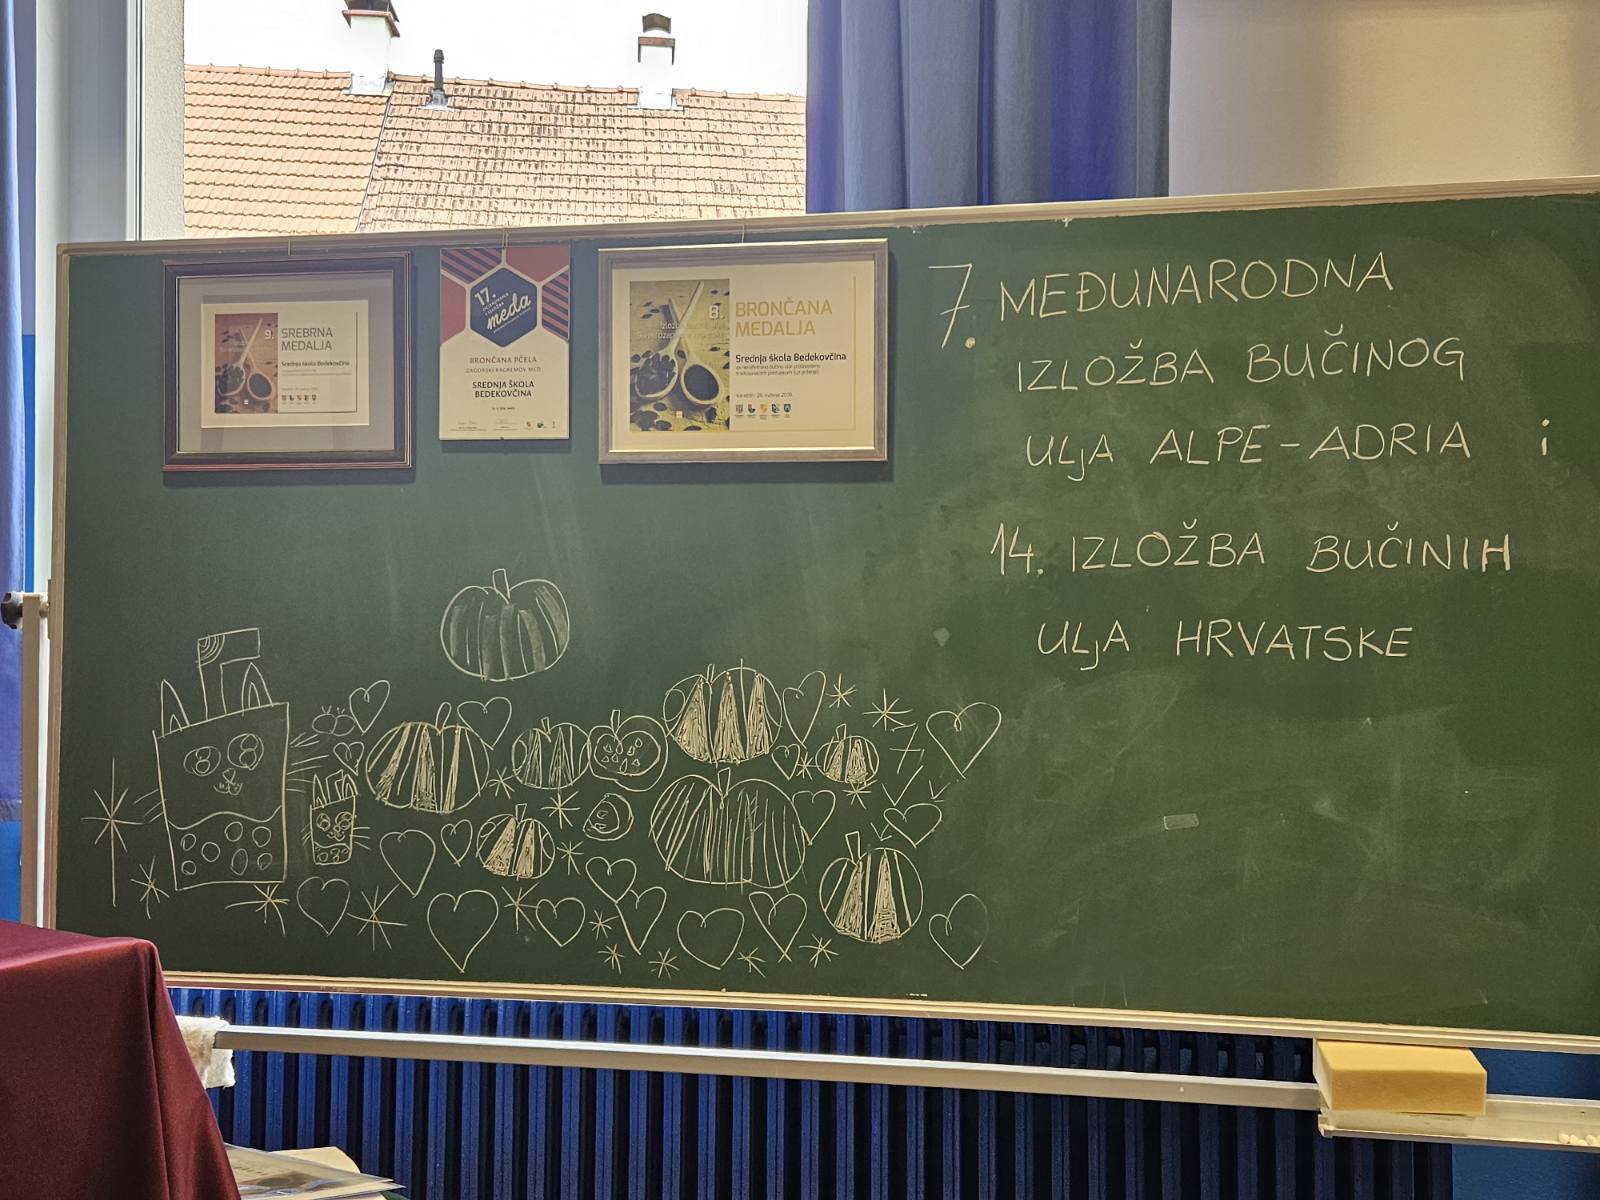 9.
SREBRNA
MEDALJA
Srednja škola Bedekovčina
17.
meda
BRONČANA PČELA
ZAGORSKI BAGREMOV MED
SREDNJA ŠKOLA
BEDEKOVČINA
8.
BRONČANA
MEDALJA
Srednja škola Bedekovčina
7. MEĐUNARODNA
IZLOŽBA BUČINOG
ULJA ALPE-ADRIA i
14. IZLOŽBA BUČINIH
ULJA HRVATSKE